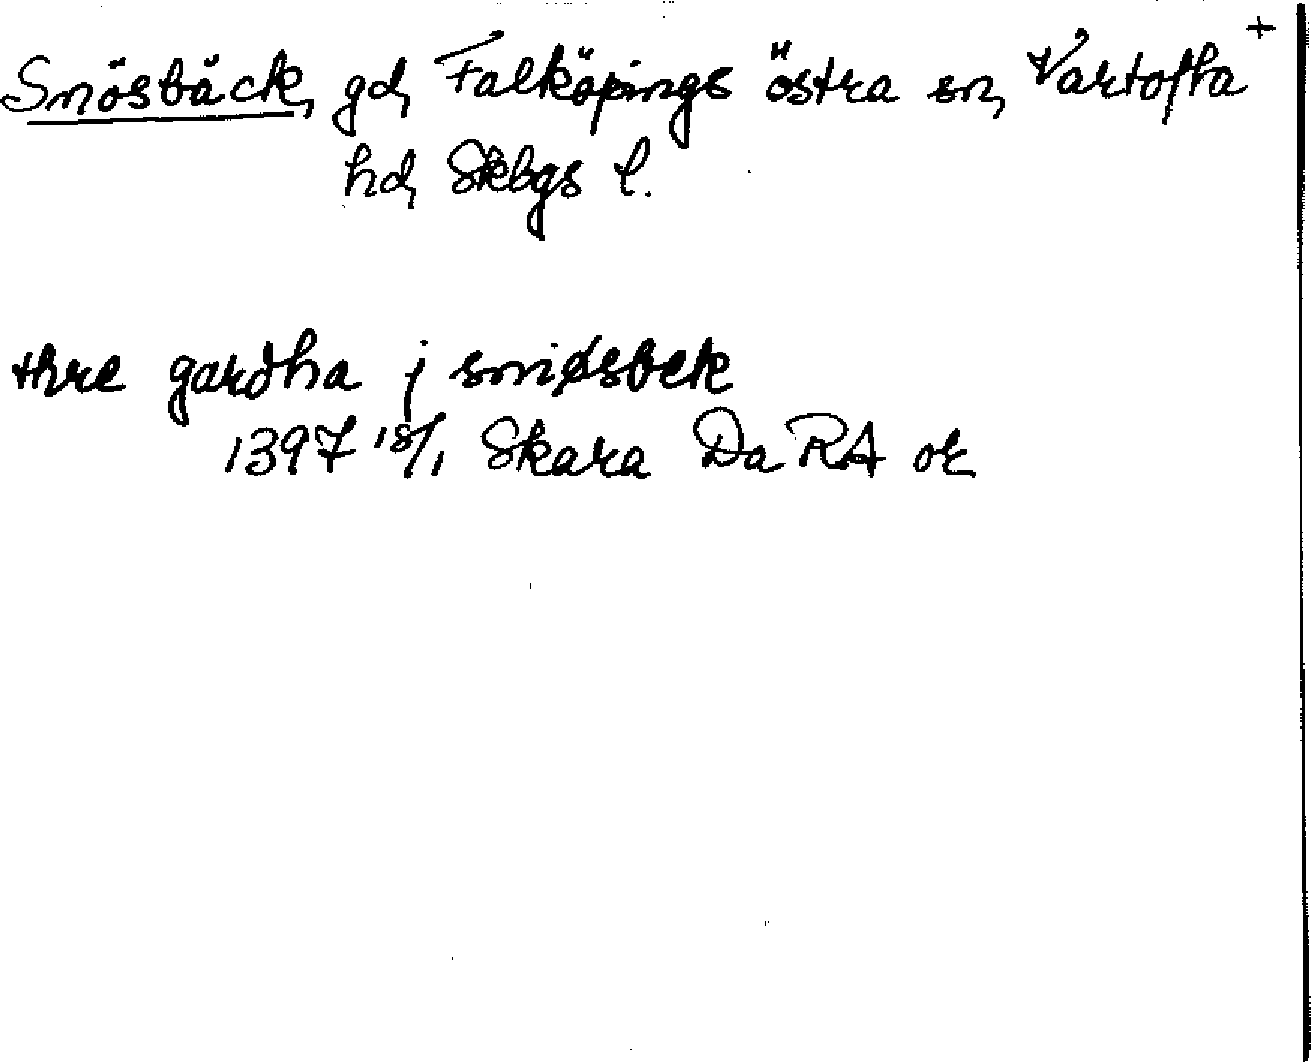 Smösbäck, gd, Falköpings östra sn, Vartofta +
hd, Skbgs l.
thre gardha j smiøsbek
1397 18/1 Skara Da RA or